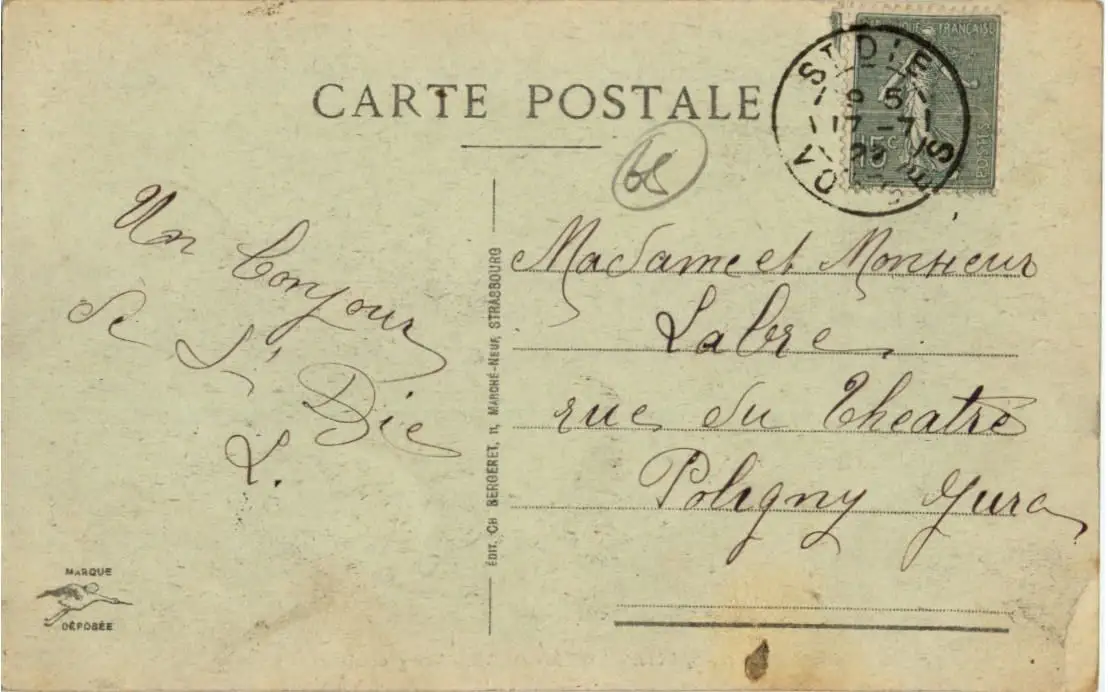 CARTE POSTALE
RÉPUBLIQUE FRANÇAISE
15c
POSTES
ST DIE
9 5
17 - 7
22
VOSGES
68
Un bonjour
de St Dié
L.
Madame et Monsieur
Labre
rue du Theatre
Poligny Jura
ÉDIT. CH BERGERET, 11, MARCHÉ-NEUF, STRASBOURG
MARQUE
DÉPOSÉE